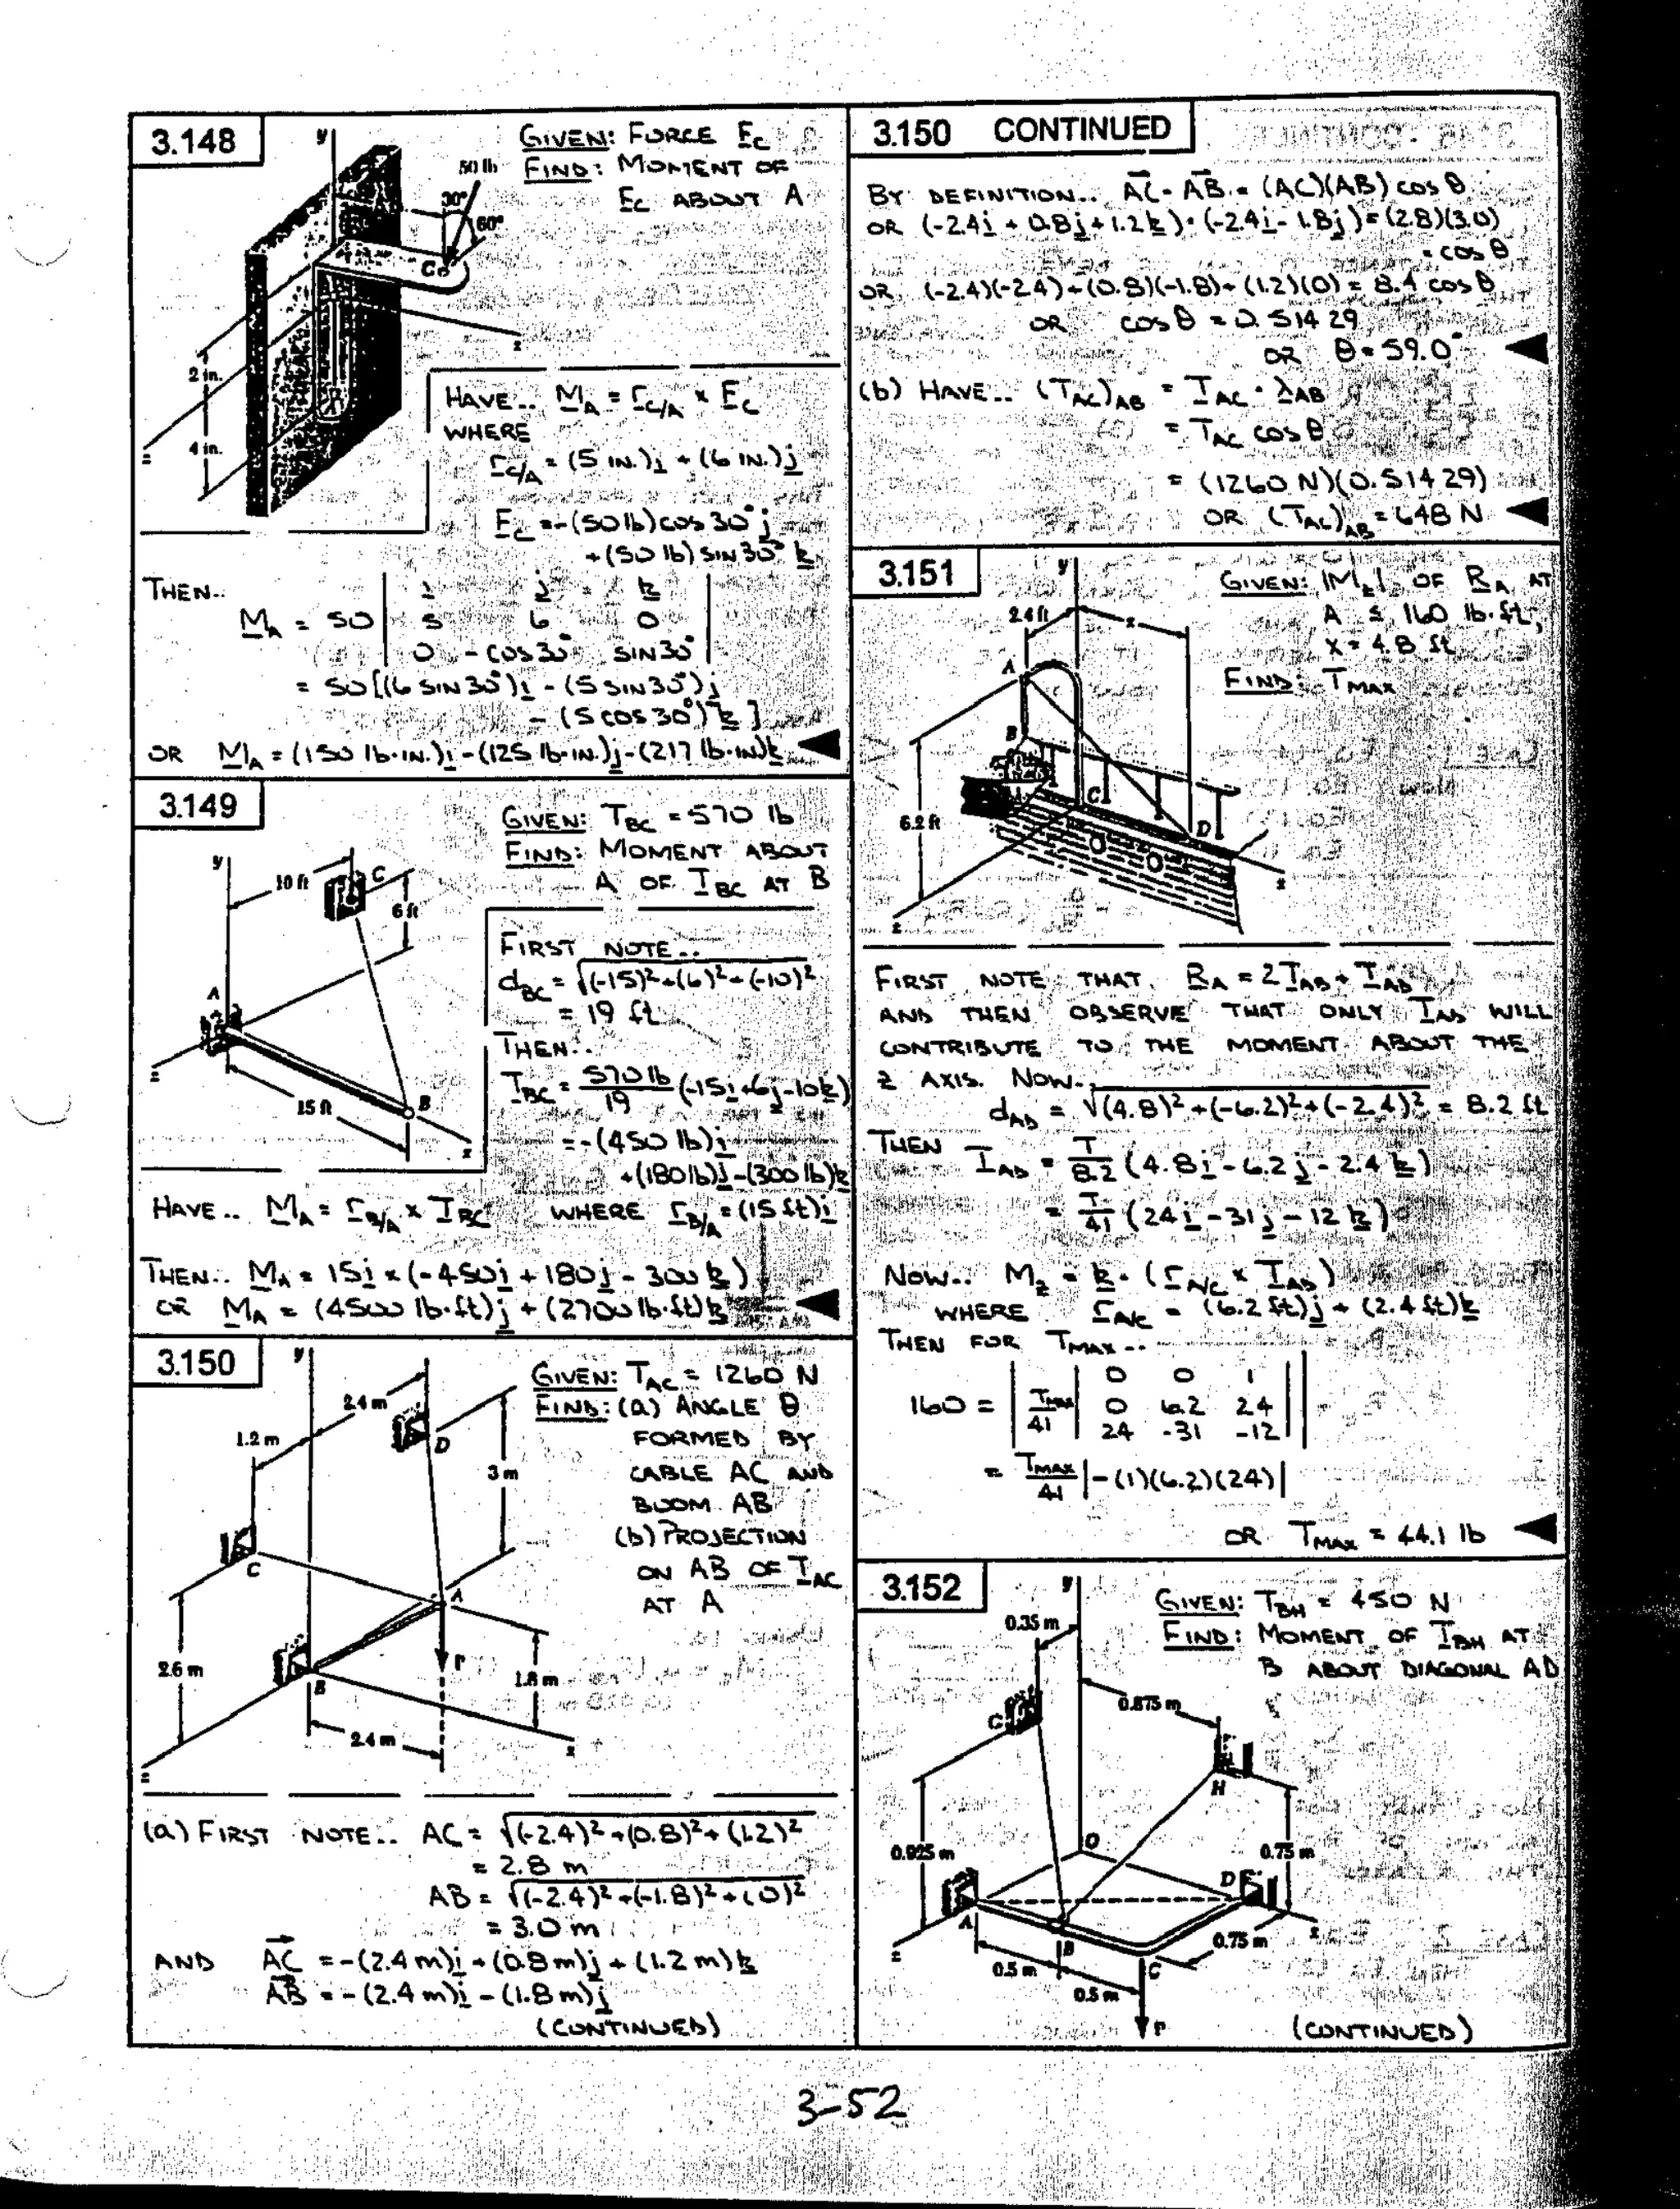 3.148
GIVEN: FORCE F_C
FIND: MOMENT OF
F_C ABOUT A
y
50 lb
30°
60°
C
x
2 in.
4 in.
z
HAVE.. M_A = r_C/A × F_C
WHERE
r_C/A = (5 IN.)i + (6 IN.)j
F_C = -(50 lb)cos 30° j
+(50 lb) SIN 30° k
THEN..
i j k
M_A = 50 | 5 6 0 |
0 -COS30° SIN30°
= 50[(6 SIN 30°)i - (5 SIN 30°)j
- (5 COS 30°) k ]
OR M_A = (150 lb·IN.)i -(125 lb·IN.)j -(217 lb·IN.)k
3.149
GIVEN: T_BC = 570 lb
FIND: MOMENT ABOUT
A OF T_BC AT B
y
10 ft
C
6 ft
A
z
15 ft
B
x
FIRST NOTE..
d_BC = √(-15)²+(6)²+(-10)²
= 19 ft
THEN..
T_BC = 570 lb/19 (-15i+6j-10k)
= -(450 lb)i
+(180 lb)j -(300 lb)k
HAVE.. M_A = r_B/A × T_BC WHERE r_B/A = (15 ft)i
THEN.. M_A = 15i × (-450i + 180j - 300k)
OR M_A = (4500 lb·ft)j + (2700 lb·ft)k
3.150
GIVEN: T_AC = 1260 N
FIND: (a) ANGLE θ
FORMED BY
CABLE AC AND
BOOM AB
(b) PROJECTION
ON AB OF T_AC
AT A
y
2.4 m
1.2 m
D
3 m
C
A
2.6 m
B
P
1.8 m
2.4 m
x
z
(a) FIRST NOTE.. AC = √(-2.4)²+(0.8)²+(1.2)²
= 2.8 m
AB = √(-2.4)²+(-1.8)²+(0)²
= 3.0 m
AND AC = -(2.4 m)i + (0.8 m)j + (1.2 m)k
AB = -(2.4 m)i - (1.8 m)j
(CONTINUED)
3.150 CONTINUED
BY DEFINITION.. AC · AB = (AC)(AB) cos θ
OR (-2.4i + 0.8j + 1.2k)·(-2.4i - 1.8j) = (2.8)(3.0)
× cos θ
OR (-2.4)(-2.4)+(0.8)(-1.8)+(1.2)(0) = 8.4 cos θ
OR cos θ = 0.51429
OR θ = 59.0°
(b) HAVE.. (T_AC)_AB = T_AC · λ_AB
= T_AC cos θ
= (1260 N)(0.51429)
OR (T_AC)_AB = 648 N
3.151
GIVEN: |M_z| OF R_A AT
A ≤ 160 lb·ft;
x = 4.8 ft
FIND: T_MAX
y
2.4 ft
x
A
B
C
D
6.2 ft
x
z
FIRST NOTE THAT R_A = 2T_AB + T_AD
AND THEN OBSERVE THAT ONLY T_AD WILL
CONTRIBUTE TO THE MOMENT ABOUT THE
z AXIS. NOW..
d_AD = √(4.8)²+(-6.2)²+(-2.4)² = 8.2 ft
THEN T_AD = T/8.2 (4.8i - 6.2j - 2.4k)
= T/41 (24i - 31j - 12k)
NOW.. M_z = k · (r_A/C × T_AD)
WHERE r_A/C = (6.2 ft)j + (2.4 ft)k
THEN FOR T_MAX..
0 0 1
160 = | T_MAX/41 | 0 6.2 2.4 ||
24 -31 -12
= T_MAX/41 |-(1)(6.2)(24)|
OR T_MAX = 44.1 lb
3.152
GIVEN: T_BH = 450 N
FIND: MOMENT OF T_BH AT
B ABOUT DIAGONAL AD
y
0.35 m
0.875 m
G
H
0.925 m
O
0.75 m
D
A
z
x
B
0.75 m
0.5 m
C
0.5 m
P
(CONTINUED)
3-52